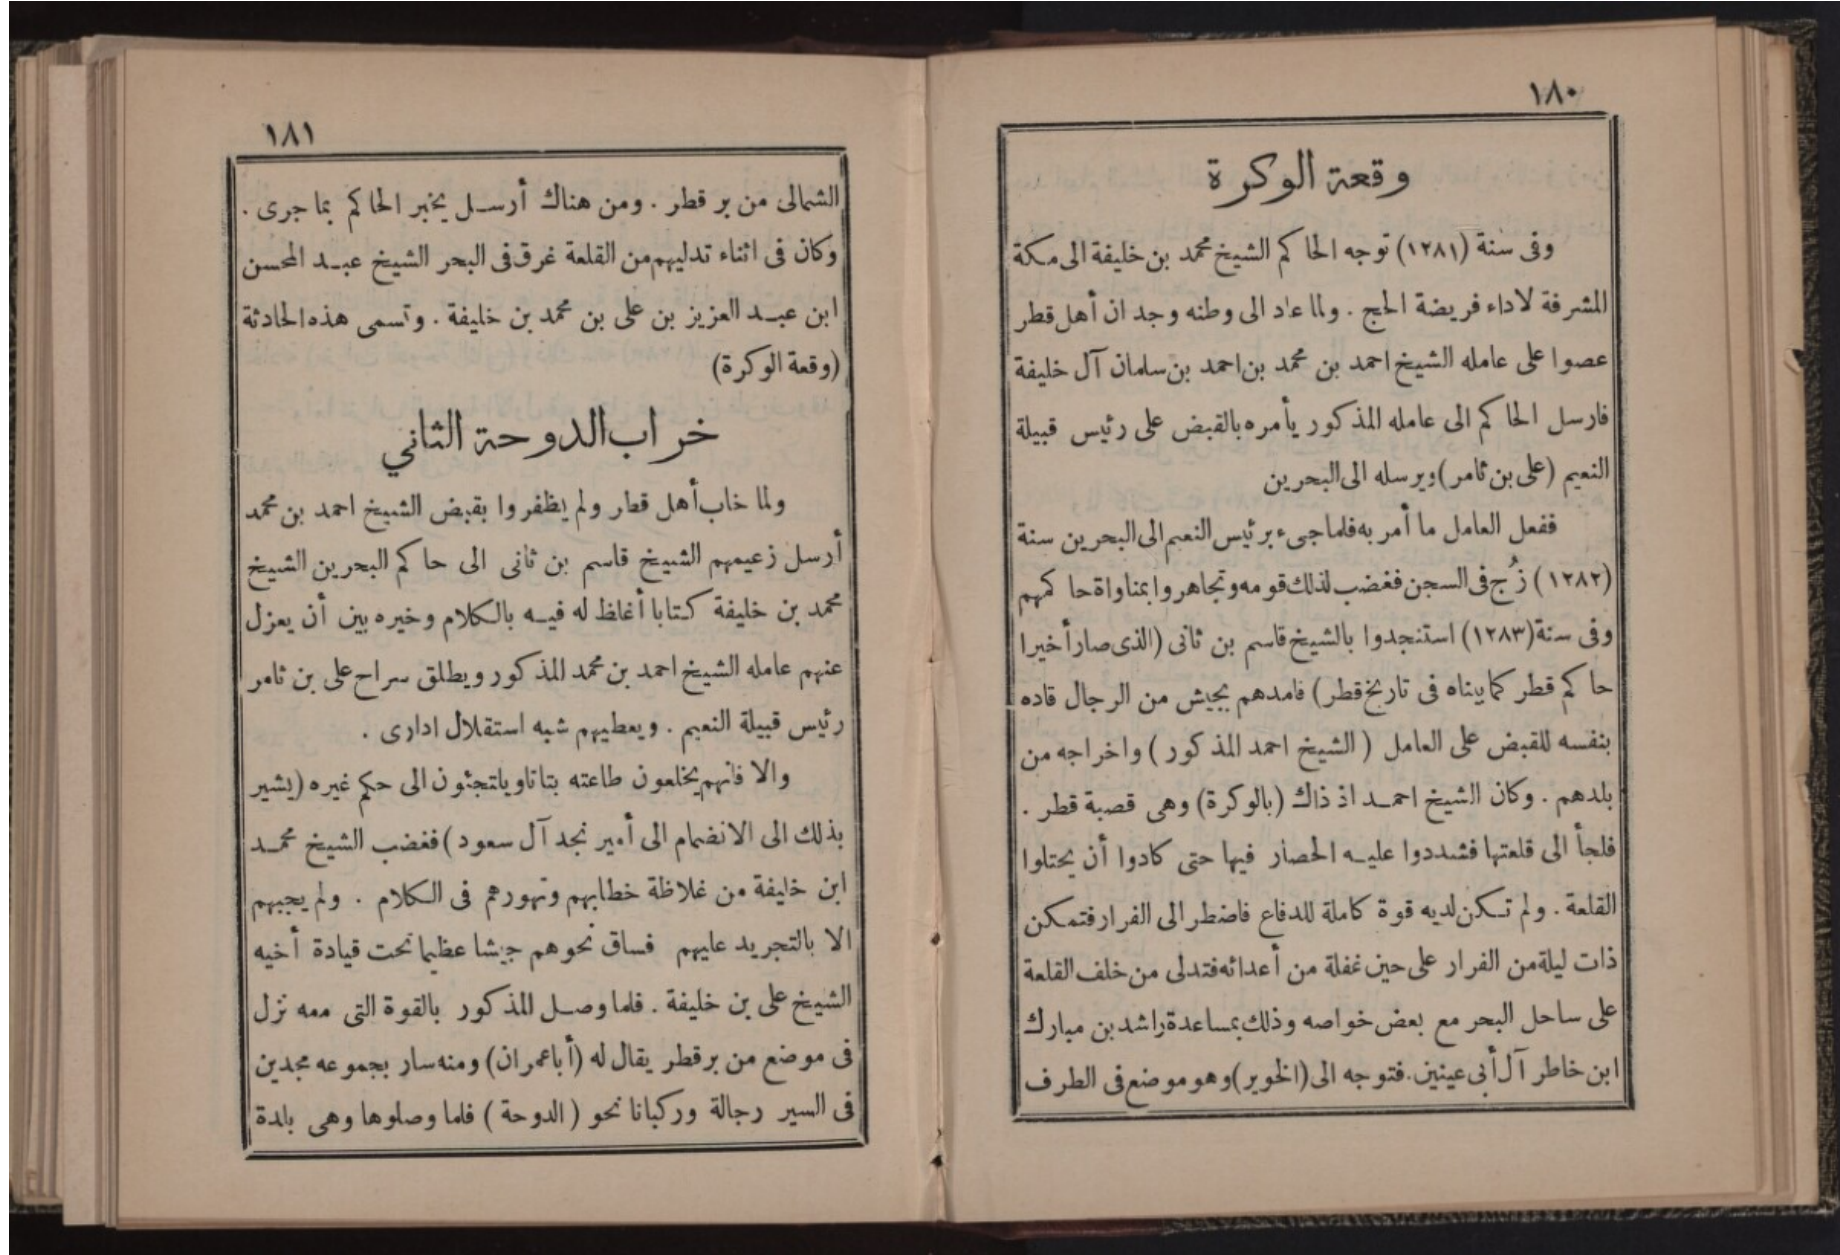 ١٨٠
وقعة الوكرة
وفى سنة (١٢٨١) توجه الحاكم الشيخ محمد بن خليفة الى مكة
المشرفة لاداء فريضة الحج . ولما عاد الى وطنه وجد ان أهل قطر
عصوا على عامله الشيخ احمد بن محمد بن احمد بن سلمان آل خليفة
فارسل الحاكم الى عامله المذكور يأمره بالقبض على رئيس قبيلة
النعيم (على بن ثامر) ويرسله الى البحرين
ففعل العامل ما أمر به فلما جىء برئيس النعيم الى البحرين سنة
(١٢٨٢) زُج فى السجن فغضب لذلك قومه وتجاهروا بمناواة حاكمهم
وفى سنة (١٢٨٣) استنجدوا بالشيخ قاسم بن ثانى (الذى صار أخيرا
حاكم قطر كما بيناه فى تاريخ قطر) فامدهم بجيش من الرجال قاده
بنفسه للقبض على العامل ( الشيخ احمد المذكور ) واخراجه من
بلدهم . وكان الشيخ احمد اذ ذاك (بالوكرة) وهى قصبة قطر .
فلجأ الى قلعتها فشددوا عليه الحصار فيها حتى كادوا أن يحتلوا
القلعة . ولم تكن لديه قوة كاملة للدفاع فاضطر الى الفرار فتمكن
ذات ليلة من الفرار على حين غفلة من أعدائه فتدلى من خلف القلعة
على ساحل البحر مع بعض خواصه وذلك بمساعدة راشد بن مبارك
ابن خاطر آل أبى عينين. فتوجه الى (الخوير) وهو موضع فى الطرف
١٨١
الشمالى من بر قطر . ومن هناك أرسل يخبر الحاكم بما جرى .
وكان فى اثناء تدليهم من القلعة غرق فى البحر الشيخ عبد المحسن
ابن عبد العزيز بن على بن محمد بن خليفة . وتسمى هذه الحادثة
(وقعة الوكرة)
خراب الدوحة الثاني
ولما خاب أهل قطر ولم يظفروا بقبض الشيخ احمد بن محمد
أرسل زعيمهم الشيخ قاسم بن ثانى الى حاكم البحرين الشيخ
محمد بن خليفة كتابا أغاظ له فيه بالكلام وخيره بين أن يعزل
عنهم عامله الشيخ احمد بن محمد المذكور ويطلق سراح على بن ثامر
رئيس قبيلة النعيم . ويعطيهم شبه استقلال ادارى .
والا فانهم يخلعون طاعته بتاتا ويلتجئون الى حكم غيره (يشير
بذلك الى الانضمام الى أمير نجد آل سعود) فغضب الشيخ محمد
ابن خليفة من غلاظة خطابهم وتهورهم فى الكلام . ولم يجبهم
الا بالتجريد عليهم فساق نحوهم جيشا عظيما تحت قيادة أخيه
الشيخ على بن خليفة . فلما وصل المذكور بالقوة التى معه نزل
فى موضع من بر قطر يقال له (أبا عمران) ومنه سار بجموعه مجدين
فى السير رجالة وركبانا نحو ( الدوحة ) فلما وصلوها وهى بلدة